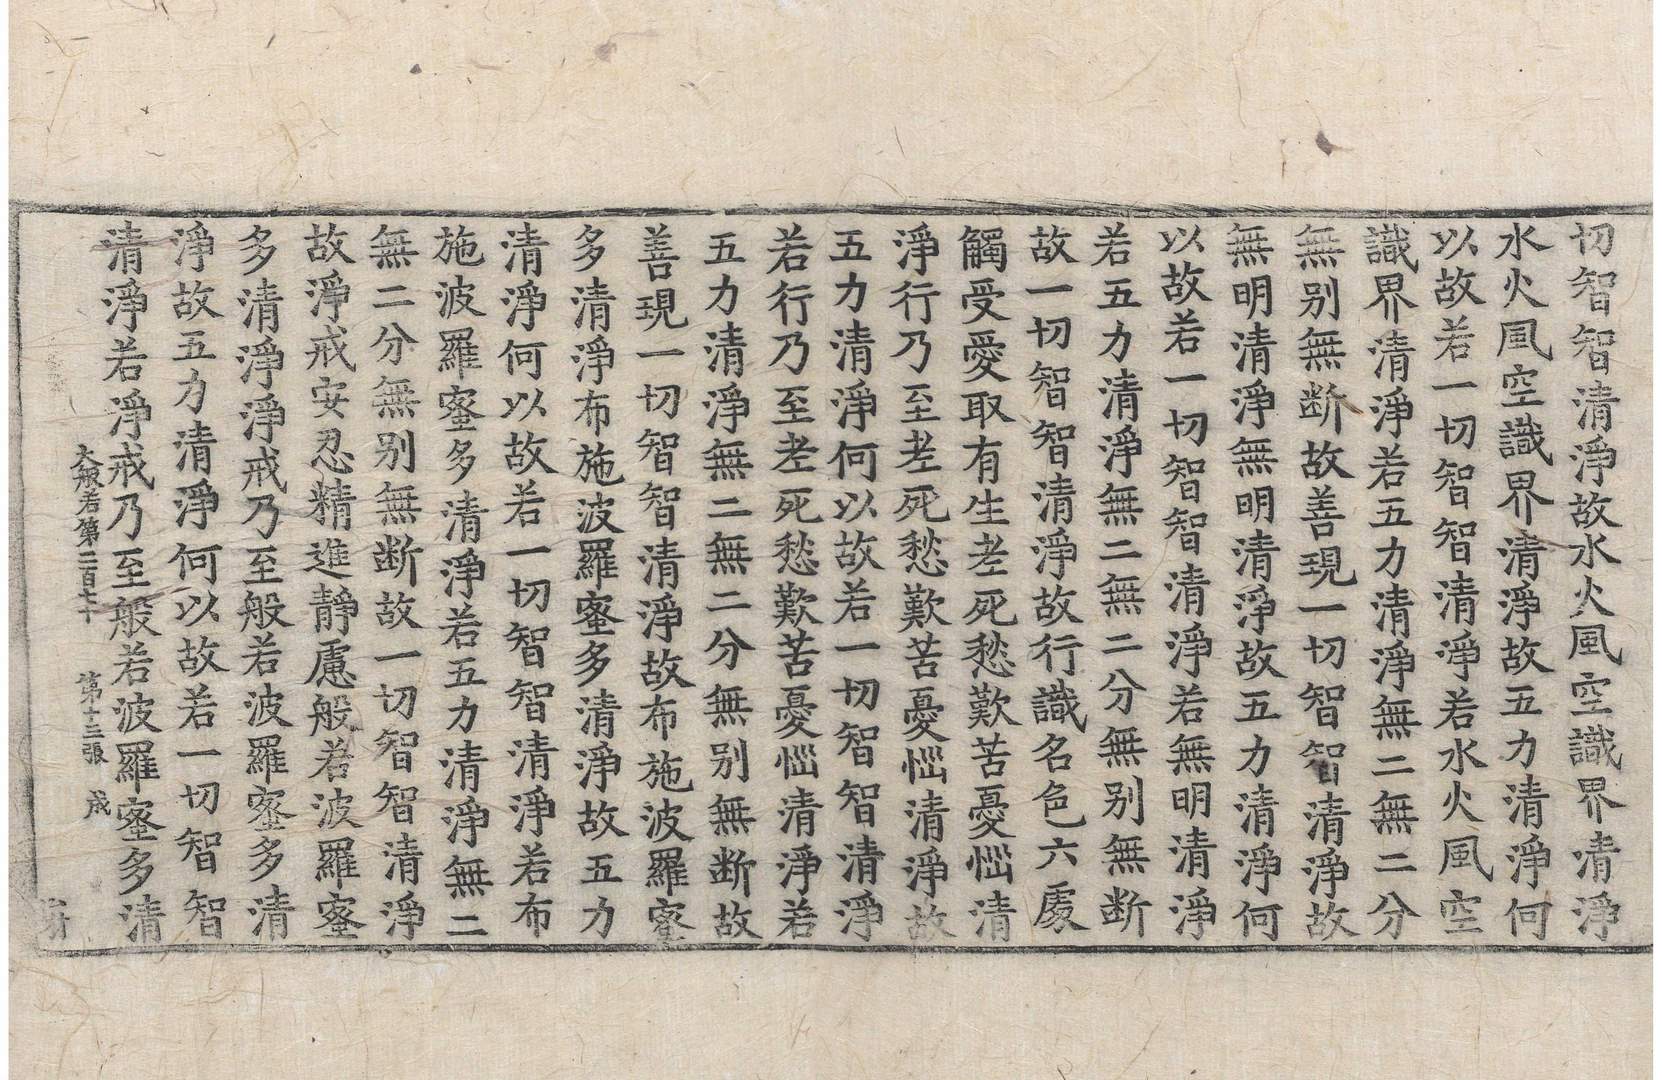 切智智清淨故水火風空識界清淨
水火風空識界清淨故五力清淨何
以故若一切智智清淨若水火風空
識界清淨若五力清淨無二無二分
無别無断故善現一切智智清淨故
無明清淨無明清淨故五力清淨何
以故若一切智智清淨若無明清淨
若五力清淨無二無二分無别無断
故一切智智清淨故行識名色六處
觸受愛取有生老死愁歎苦憂惱清
淨行乃至老死愁歎苦憂惱清淨故
五力清淨何以故若一切智智清淨
若行乃至老死愁歎苦憂惱清淨若
五力清淨無二無二分無别無断故
善現一切智智清淨故布施波羅蜜
多清淨布施波羅蜜多清淨故五力
清淨何以故若一切智智清淨若布
施波羅蜜多清淨若五力清淨無二
無二分無别無断故一切智智清淨
故淨戒安忍精進靜慮般若波羅蜜
多清淨淨戒乃至般若波羅蜜多清
淨故五力清淨何以故若一切智智
清淨若淨戒乃至般若波羅蜜多清
大般若第二百七十 第十三張 成